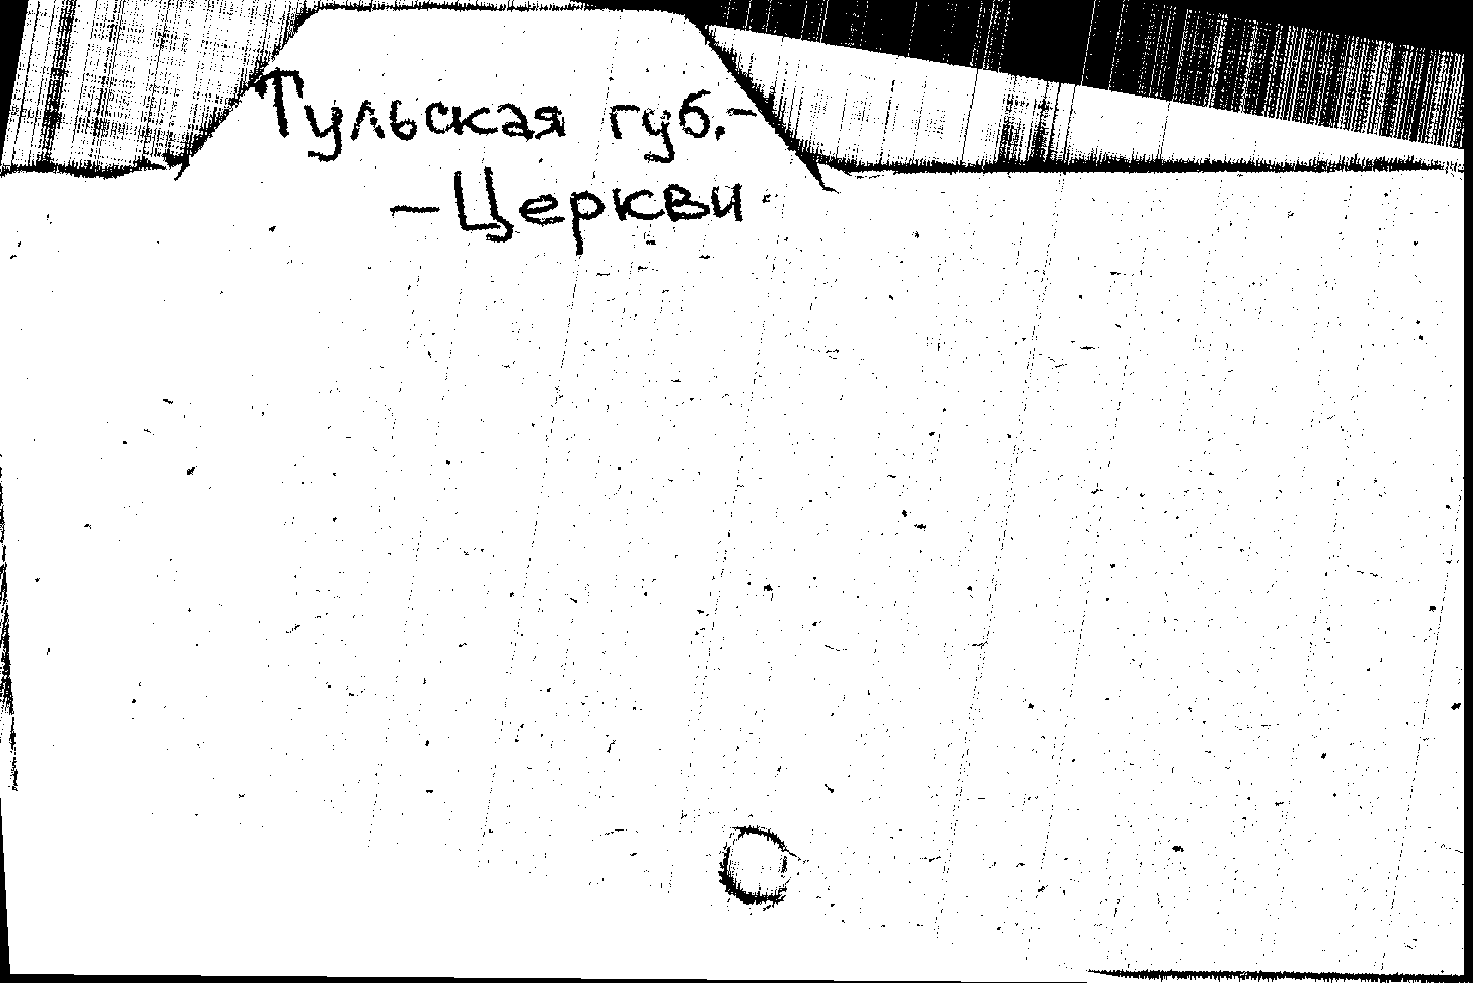 Тульская губ.-
-Церкви